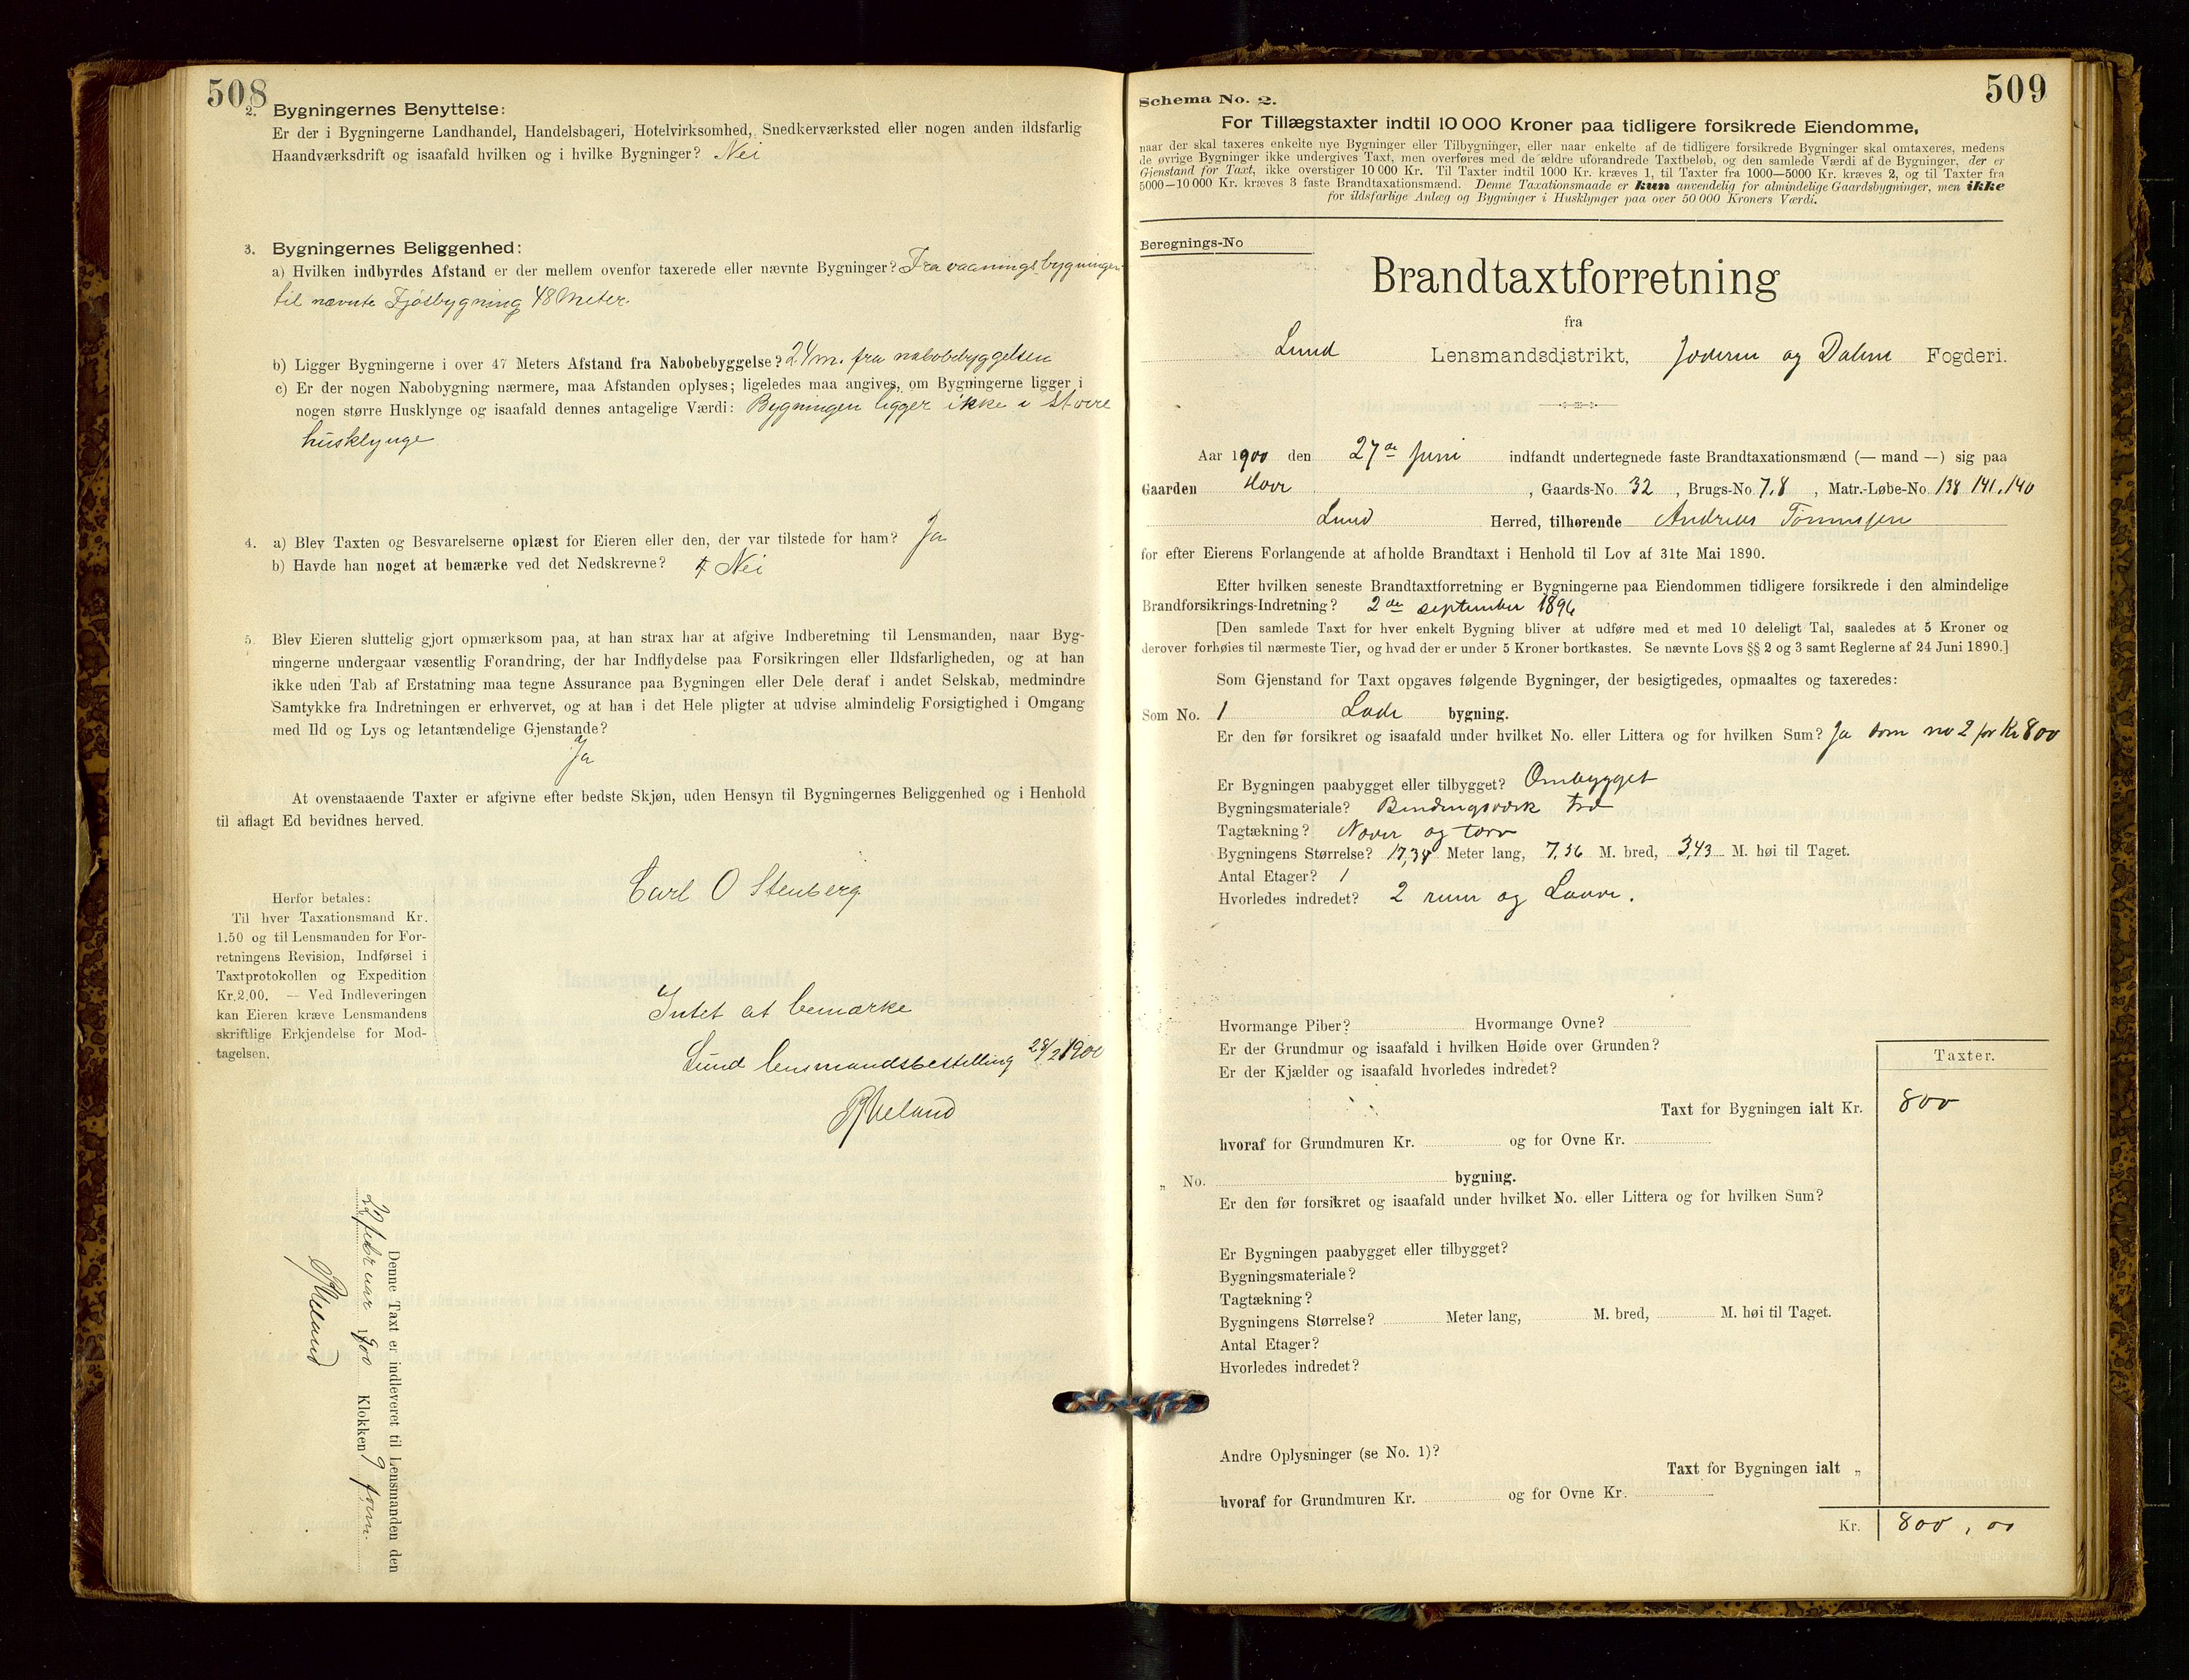 508
2. Bygningernes Benyttelse:
Er der i Bygningerne Landhandel, Handelsbageri, Hotelvirksomhed, Snedkerværksted eller nogen anden ildsfarlig
Haandværksdrift og isaafald hvilken og i hvilke Bygninger? Nei
3. Bygningernes Beliggenhed:
a) Hvilken indbyrdes Afstand er der mellem ovenfor taxerede eller nævnte Bygninger? Fra vaaningsbygningen
til nævnte Fjøsbygning 48 Meter.
b) Ligger Bygningerne i over 47 Meters Afstand fra Nabobebyggelse? 24 m. fra nabobebyggelsen
c) Er der nogen Nabobygning nærmere, maa Afstanden oplyses; ligeledes maa angives, om Bygningerne ligger i
nogen større Husklynge og isaafald dennes antagelige Værdi: Bygningen ligger ikke i større
husklynge
4. a) Blev Taxten og Besvarelserne oplæst for Eieren eller den, der var tilstede for ham? Ja
b) Havde han noget at bemærke ved det Nedskrevne? Nei
5. Blev Eieren sluttelig gjort opmærksom paa, at han strax har at afgive Indberetning til Lensmanden, naar Byg-
ningerne undergaar væsentlig Forandring, der har Indflydelse paa Forsikringen eller Ildsfarligheden, og at han
ikke uden Tab af Erstatning maa tegne Assurance paa Bygningen eller Dele deraf i andet Selskab, medmindre
Samtykke fra Indretningen er erhvervet, og at han i det Hele pligter at udvise almindelig Forsigtighed i Omgang
med Ild og Lys og letantændelige Gjenstande?
Ja
At ovenstaaende Taxter er afgivne efter bedste Skjøn, uden Hensyn til Bygningernes Beliggenhed og i Henhold
til aflagt Ed bevidnes herved.
Carl O Stenberg
Herfor betales:
Til hver Taxationsmand Kr.
1.50 og til Lensmanden for For-
retningens Revision, Indførsel i
Taxtprotokollen og Expedition
Kr.2.00. — Ved Indleveringen
kan Eieren kræve Lensmandens
skriftlige Erkjendelse for Mod-
tagelsen.
Intet at bemærke
Lund lensmandsbestilling 28/2 1900
Denne Taxt er indleveret til Lensmanden den
22 februar 1900 Klokken 9 form.
509
Schema No. 2.
For Tillægstaxter indtil 10 000 Kroner paa tidligere forsikrede Eiendomme,
naar der skal taxeres enkelte nye Bygninger eller Tilbygninger, eller naar enkelte af de tidligere forsikrede Bygninger skal omtaxeres, medens
de øvrige Bygninger ikke undergives Taxt, men overføres med de ældre uforandrede Taxtbeløb, og den samlede Værdi af de Bygninger, der er
Gjenstand for Taxt, ikke overstiger 10 000 Kr. Til Taxter indtil 1000 Kr. kræves 1, til Taxter fra 1000—5000 Kr. kræves 2, og til Taxter fra
5000—10 000 Kr. kræves 3 faste Brandtaxationsmænd. Denne Taxationsmaade er kun anvendelig for almindelige Gaardsbygninger, men ikke
for ildsfarlige Anlæg og Bygninger i Husklynger paa over 50 000 Kroners Værdi.
Beregnings-No
Brandtaxtforretning
fra
Lund Lensmandsdistrikt, Jæderen og Dalene Fogderi.
Aar 1900 den 27de Juni indfandt undertegnede faste Brandtaxationsmænd (— mand —) sig paa
Gaarden Hovr, Gaards-No. 32, Brugs-No 7,8, Matr.-Løbe-No. 138 141,140
Lund Herred, tilhørende Andreas Tønnesen
for efter Eierens Forlangende at afholde Brandtaxt i Henhold til Lov af 31te Mai 1890.
Efter hvilken seneste Brandtaxtforretning er Bygningerne paa Eiendommen tidligere forsikrede i den almindelige
Brandforsikrings-Indretning? 2de september 1896
[Den samlede Taxt for hver enkelt Bygning bliver at udføre med et med 10 deleligt Tal, saaledes at 5 Kroner og
derover forhøies til nærmeste Tier, og hvad der er under 5 Kroner bortkastes. Se nævnte Lovs §§ 2 og 3 samt Reglerne af 24 Juni 1890.]
Som Gjenstand for Taxt opgaves følgende Bygninger, der besigtigedes, opmaaltes og taxeredes:
Som No. 1 Lade bygning.
Er den før forsikret og isaafald under hvilket No. eller Littera og for hvilken Sum? Ja som no 2 for Kr 800
Er Bygningen paabygget eller tilbygget? Ombygget
Bygningsmateriale? Bindingsværk træ
Tagtækning? Næver og torv
Bygningens Størrelse? 17,34 Meter lang, 7,56 M. bred, 3,43 M. høi til Taget.
Antal Etager? 1
Hvorledes indredet? 2 rum og Laave.
Hvormange Piber? Hvormange Ovne?
Er der Grundmur og isaafald i hvilken Høide over Grunden?
Er der Kjælder og isaafald hvorledes indredet?
Taxter.
Taxt for Bygningen ialt Kr. 800
hvoraf for Grundmuren Kr. og for Ovne Kr.
„ No. bygning.
Er den før forsikret og isaafald under hvilket No. eller Littera og for hvilken Sum?
Er Bygningen paabygget eller tilbygget?
Bygningsmateriale?
Tagtækning?
Bygningens Størrelse? Meter lang, M. bred, M. høi til Taget.
Antal Etager?
Hvorledes indredet?
Andre Oplysninger (se No. 1)?
Taxt for Bygningen ialt „
hvoraf for Grundmuren Kr. og for Ovne Kr.
Kr. 800,00